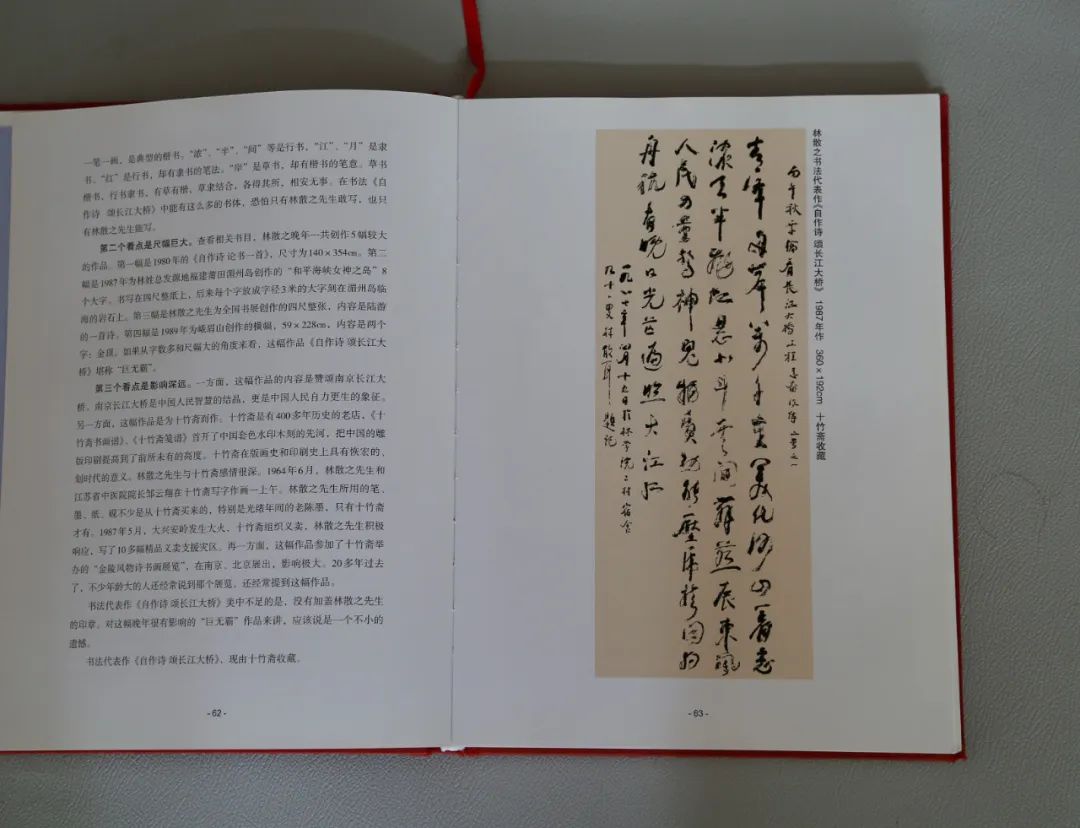 一笔一画，是典型的楷书。“浓”、“半”、“间”等是行书，“江”、“月”是隶
书。“红”是行书，却有隶书的笔法。“岸”是草书，却有楷书的笔意。草书
楷书，行书隶书，有草有楷，草隶结合，各得其所，相安无事。在书法《自
作诗 颂长江大桥》中能有这么多的书体，恐怕只有林散之先生敢写，也只
有林散之先生能写。
第二个看点是尺幅巨大。查看相关书目，林散之晚年一共创作5幅较大
的作品。第一幅是1980年的《自作诗 论书一首》，尺寸为140×354cm。第二
幅是1987年为林姓总发源地福建莆田湄州岛创作的“和平海峡女神之岛”8
个大字。书写在四尺整纸上，后来每个字放成字径3米的大字刻在湄州岛临
海的岩石上。第三幅是林散之先生为全国书展创作的四尺整张，内容是陆游
的一首诗。第四幅是1989年为峨眉山创作的横幅，59×228cm，内容是两个
字：金顶。如果从字数多和尺幅大的角度来看，这幅作品《自作诗 颂长江大
桥》堪称“巨无霸”。
第三个看点是影响深远。一方面，这幅作品的内容是赞颂南京长江大
桥。南京长江大桥是中国人民智慧的结晶，更是中国人民自力更生的象征。
另一方面，这幅作品是为十竹斋而作。十竹斋是有400多年历史的老店，《十
竹斋书画谱》、《十竹斋笺谱》首开了中国套色水印木刻的先河，把中国的雕
版印刷提高到了前所未有的高度。十竹斋在版画史和印刷史上具有恢宏的、
划时代的意义。林散之先生与十竹斋感情很深。1964年6月，林散之先生和
江苏省中医院院长邹云翔在十竹斋写字作画一上午。林散之先生所用的笔、
墨、纸、砚不少是从十竹斋买来的，特别是光绪年间的老陈墨，只有十竹斋
才有。1987年5月，大兴安岭发生大火，十竹斋组织义卖，林散之先生积极
响应，写了10多幅精品义卖支援灾区。再一方面，这幅作品参加了十竹斋举
办的“金陵风物诗书画展览”，在南京、北京展出，影响极大。20多年过去
了，不少年龄大的人还经常说到那个展览。还经常提到这幅作品。
书法代表作《自作诗 颂长江大桥》美中不足的是，没有加盖林散之先生
的印章。对这幅晚年很有影响的“巨无霸”作品来讲，应该说是一个不小的
遗憾。
书法代表作《自作诗 颂长江大桥》，现由十竹斋收藏。
- 62 -
林散之书法代表作《自作诗 颂长江大桥》 1987年作 360×192cm 十竹斋收藏
人民力量惊神鬼
舟航看晚日光芒遍照大江红
- 63 -